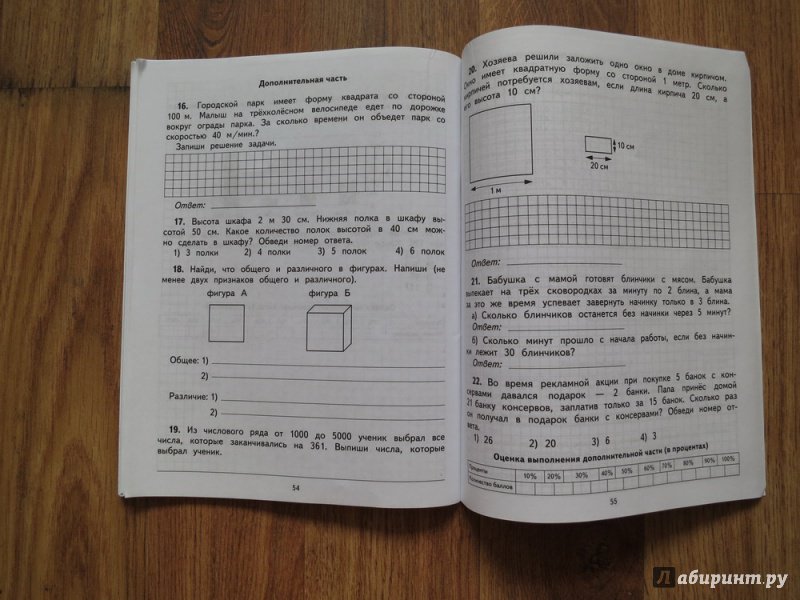 Дополнительная часть
16. Городской парк имеет форму квадрата со стороной
100 м. Малыш на трёхколёсном велосипеде едет по дорожке
вокруг ограды парка. За сколько времени он объедет парк со
скоростью 40 м/мин.?
Запиши решение задачи.
Ответ:
17. Высота шкафа 2 м 30 см. Нижняя полка в шкафу вы-
сотой 50 см. Какое количество полок высотой в 40 см мож-
но сделать в шкафу? Обведи номер ответа.
1) 3 полки 2) 4 полки 3) 5 полок 4) 6 полок
18. Найди, что общего и различного в фигурах. Напиши (не
менее двух признаков общего и различного).
фигура А фигура Б
Общее: 1)
2)
Различие: 1)
2)
19. Из числового ряда от 1000 до 5000 ученик выбрал все
числа, которые заканчивались на 361. Выпиши числа, которые
выбрал ученик.
54
20. Хозяева решили заложить одно окно в доме кирпичом.
Окно имеет квадратную форму со стороной 1 метр. Сколько
кирпичей потребуется хозяевам, если длина кирпича 20 см, а
его высота 10 см?
10 см
20 см
1 м
Ответ:
21. Бабушка с мамой готовят блинчики с мясом. Бабушка
выпекает на трёх сковородках за минуту по 2 блина, а мама
за это же время успевает завернуть начинку только в 3 блина.
а) Сколько блинчиков останется без начинки через 5 минут?
Ответ:
б) Сколько минут прошло с начала работы, если без начин-
ки лежит 30 блинчиков?
Ответ:
22. Во время рекламной акции при покупке 5 банок с кон-
сервами давался подарок — 2 банки. Папа принёс домой
21 банку консервов, заплатив только за 15 банок. Сколько раз
он получал в подарок банки с консервами? Обведи номер от-
вета.
1) 26 2) 20 3) 6 4) 3
Оценка выполнения дополнительной части (в процентах)
Проценты 10% 20% 30% 40% 50% 60% 70% 80% 90% 100%
Количество баллов
55
Лабиринт.ру